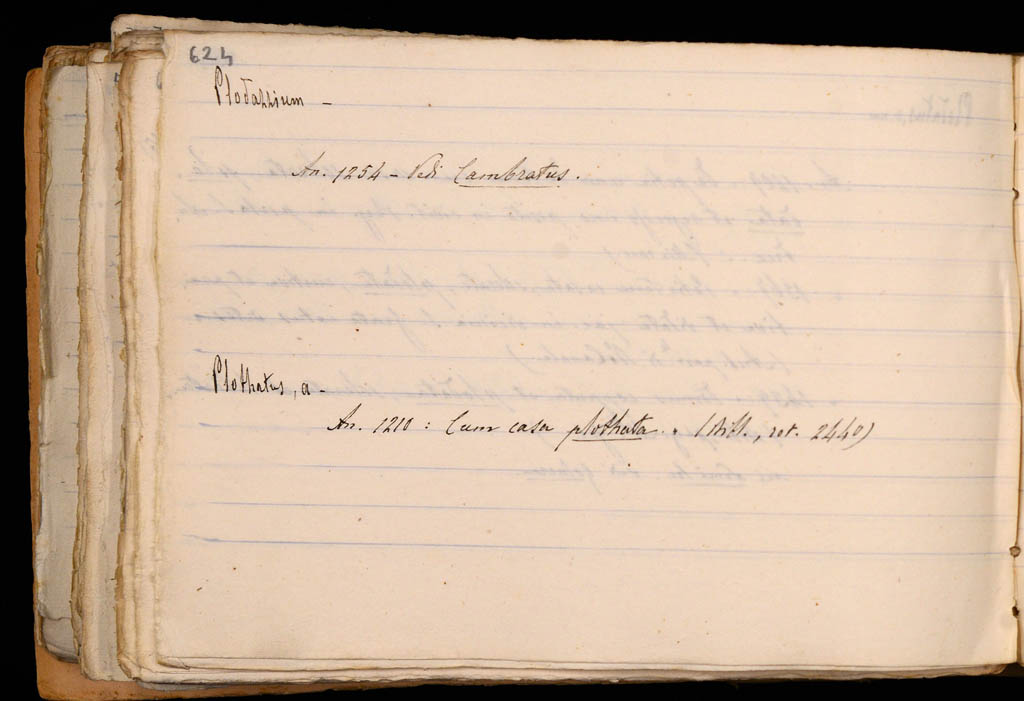 624
Plodassium -
An. 1254 - Vedi Cambratus.
Plothatus, a -
An. 1210 : Cum casa plothata. (
, rot. 2440)